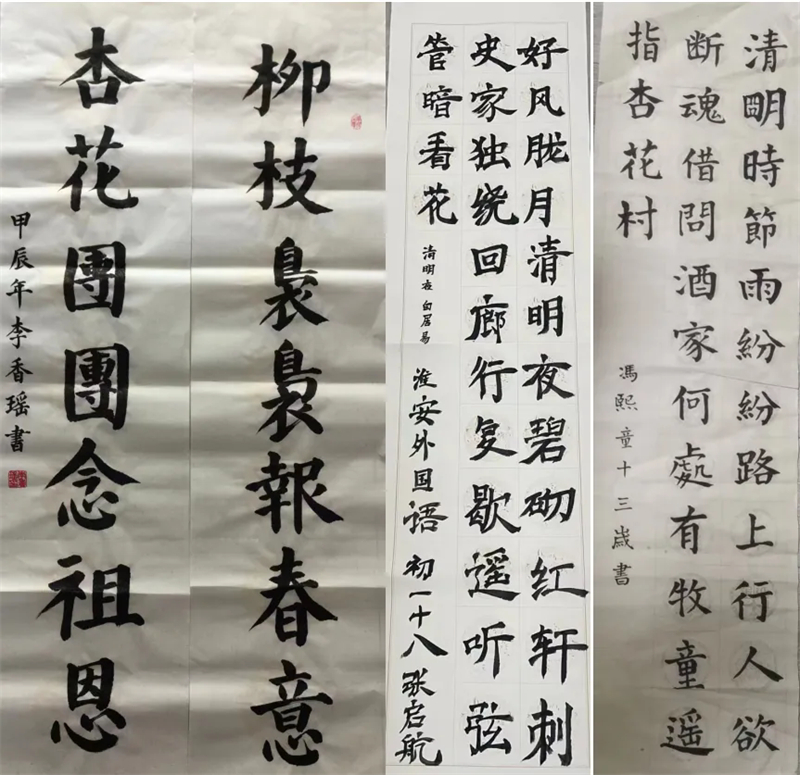 柳枝裊裊報春意
杏花團團念祖恩
甲辰年李香瑶書
好风胧月清明夜碧砌红轩刺
史家独绕回廊行复歇遥听弦
管暗看花
清明夜 白居易
淮安外国语 初一十八 张启航
清明時節雨紛紛路上行人欲
断魂借問酒家何處有牧童遥
指杏花村
馮熙童十三歲書